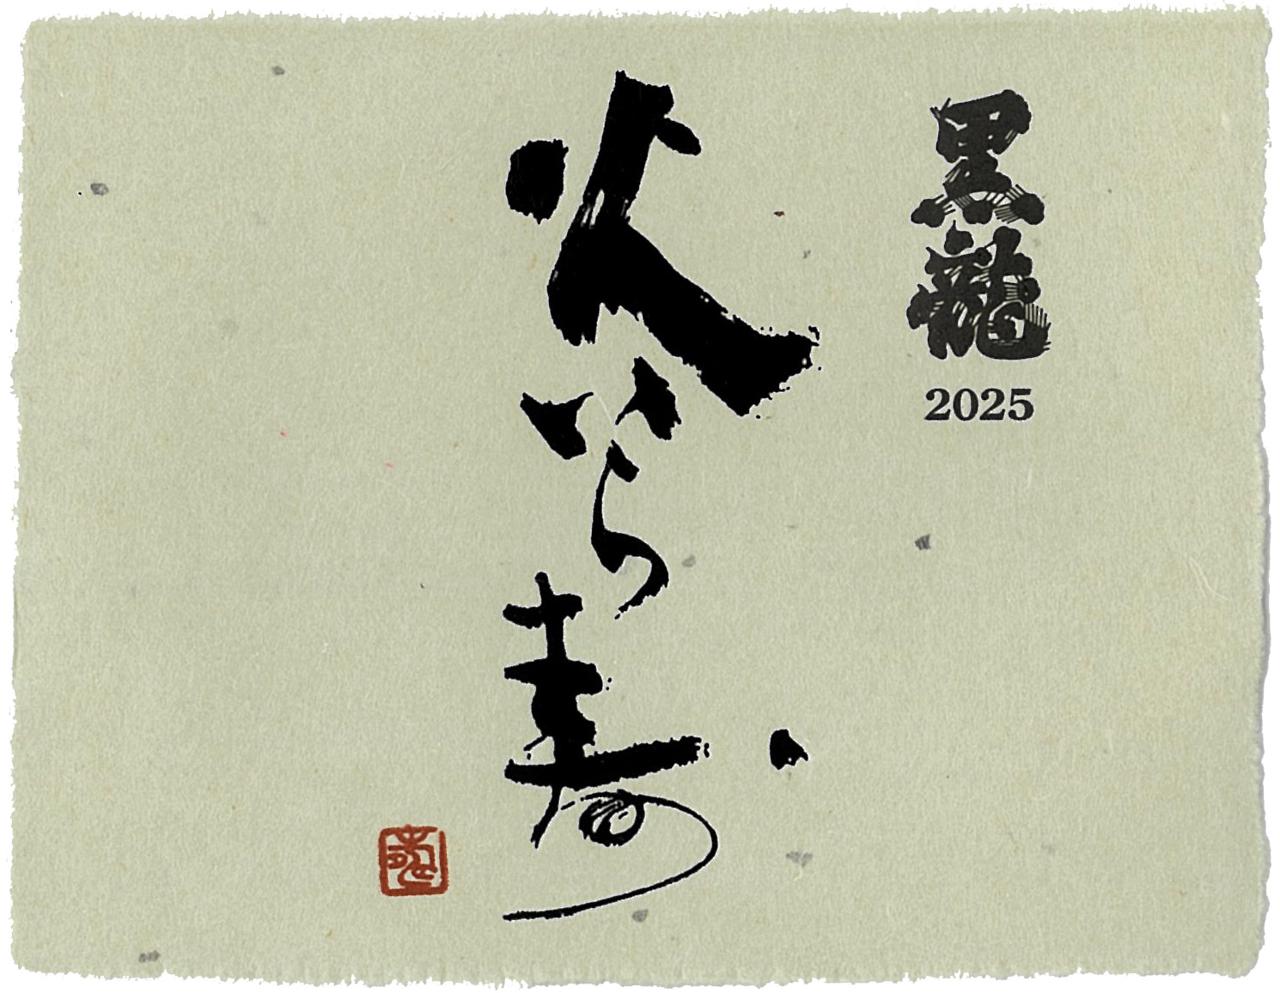 黒龍
2025
火いら寿